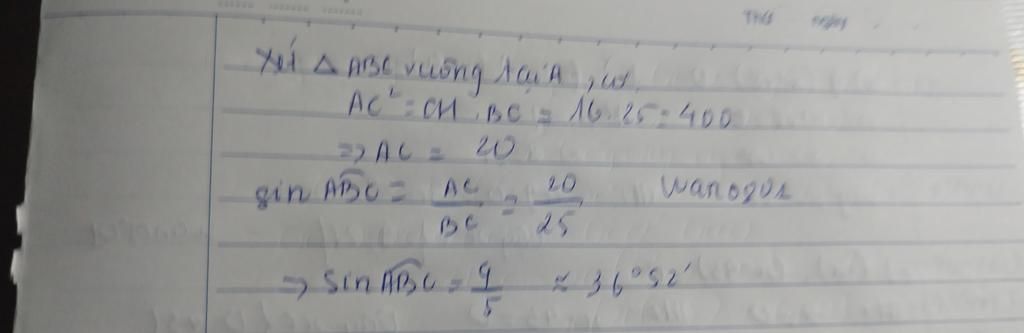 Thứ ngày
Xét △ ABC vuông tại A, có
AC² = CH . BC = 16.25 = 400
=> AC = 20
sin ABC = AC/BC = 20/25 wanogoz
=> sin ABC = 4/5 ≈ 36°52'